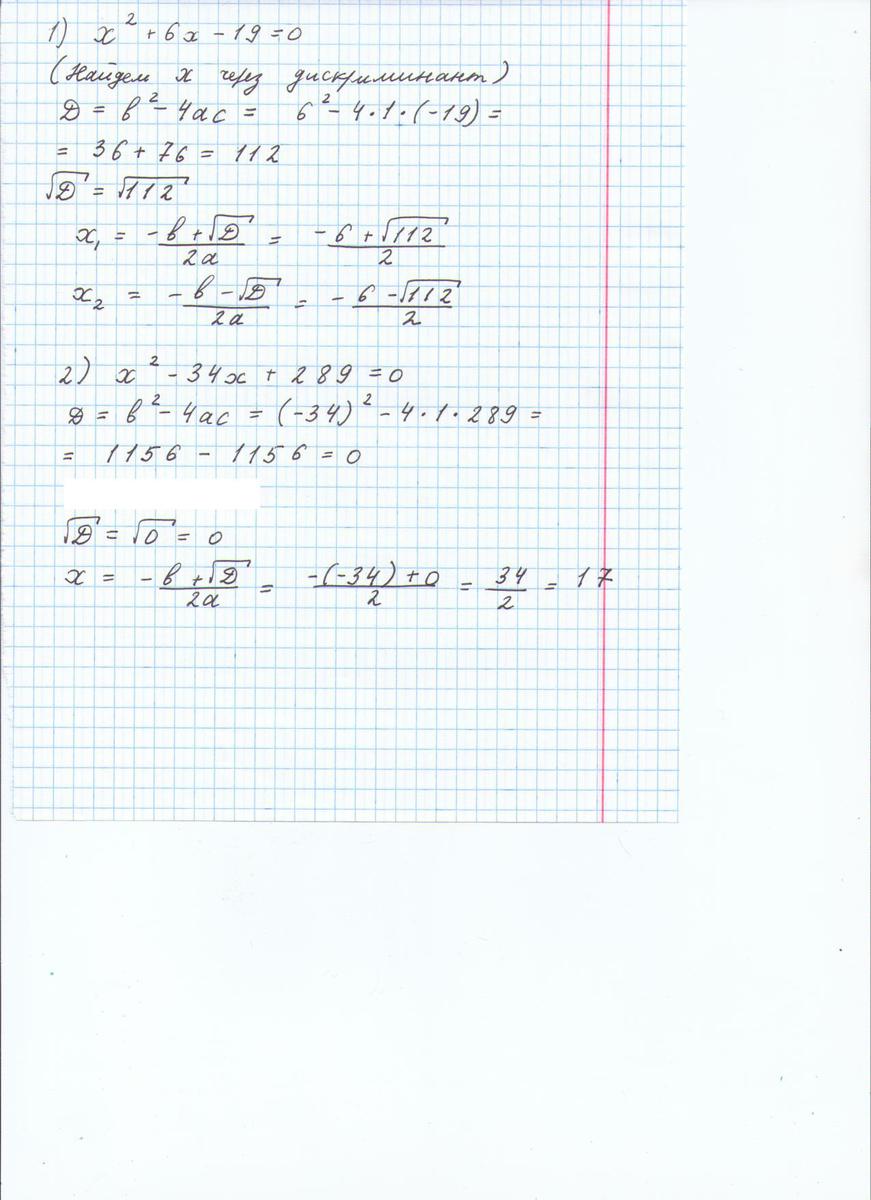 1) x² + 6x - 19 = 0
(Найдем x через дискриминант)
D = b² - 4ac = 6² - 4·1·(-19) =
= 36 + 76 = 112
√D = √112
x₁ = (-b + √D)/2a = (-6 + √112)/2
x₂ = (-b - √D)/2a = (-6 - √112)/2
2) x² - 34x + 289 = 0
D = b² - 4ac = (-34)² - 4·1·289 =
= 1156 - 1156 = 0
√D = √0 = 0
x = (-b + √D)/2a = (-(-34) + 0)/2 = 34/2 = 17